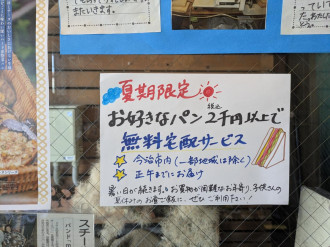 またいきます。
夏期限定
お好きなパン2千円以上で
税込
無料宅配サービス
今治市内(一部地域は除く)
正午までにお届け
暑い日が続きます。お買物が困難なお年寄り、子供さんの
夏休みのお昼ご飯に、ぜひご利用下さい!
スチ
パン